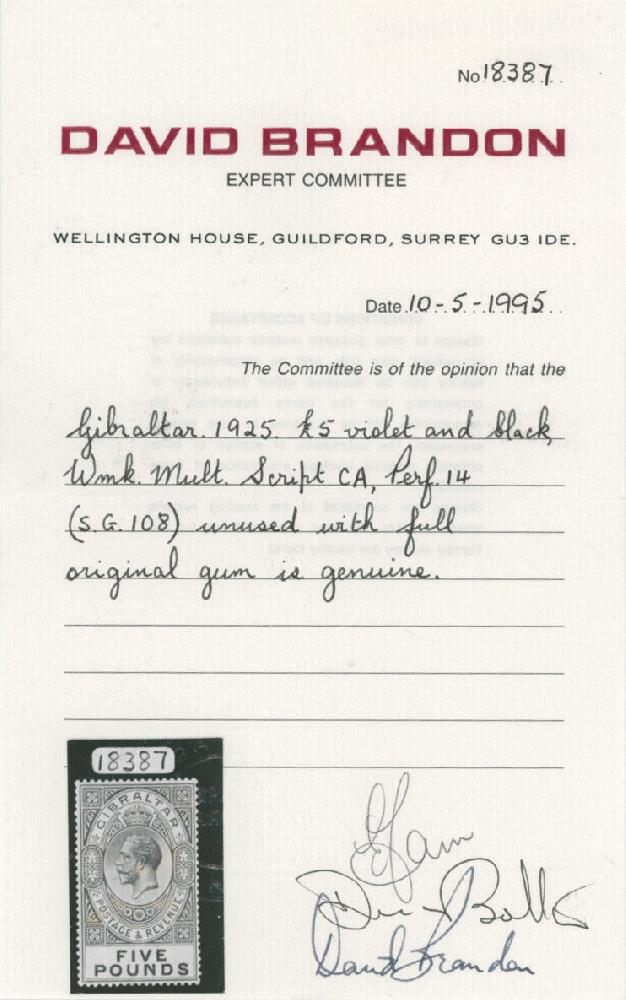 No 18387
DAVID BRANDON
EXPERT COMMITTEE
WELLINGTON HOUSE, GUILDFORD, SURREY GU3 IDE.
Date 10-5-1995
The Committee is of the opinion that the
Gibraltar. 1925 £5 violet and black,
Wmk. Mult. Script CA, Perf. 14
(S.G. 108) unused with full
original gum is genuine.
18387
GIBRALTAR
POSTAGE & REVENUE
FIVE
POUNDS
David Brandon